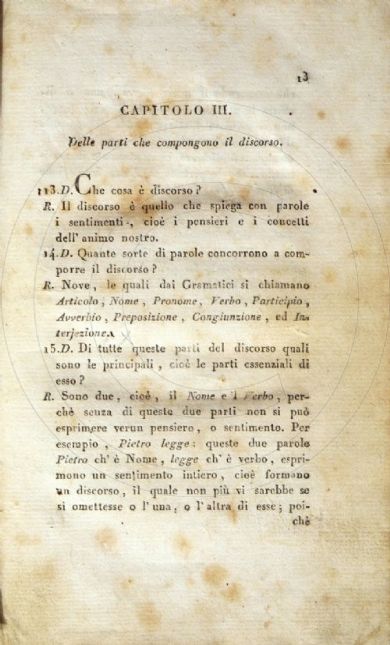 13
CAPITOLO III.
Delle parti che compongono il discorso.
113.D. Che cosa è discorso?
R. Il discorso è quello che spiega con parole
i sentimenti, cioè i pensieri e i concetti
dell' animo nostro.
14.D. Quante sorte di parole concorrono a com-
porre il discorso?
R. Nove, le quali dai Gramatici si chiamano
Articolo, Nome, Pronome, Verbo, Participio,
Avverbio, Preposizione, Congiunzione, ed In-
terjezione.
15.D. Di tutte queste parti del discorso quali
sono le principali, cioè le parti essenziali di
esso?
R. Sono due, cioè, il Nome e 'l Verbo, per-
chè senza di queste due parti non si può
esprimere verun pensiero, o sentimento. Per
esempio, Pietro legge: queste due parole
Pietro ch' è Nome, legge ch' è verbo, espri-
mono un sentimento intiero, cioè formano
un discorso, il quale non più vi sarebbe se
si omettesse o l' una, o l' altra di esse; poi-
chè